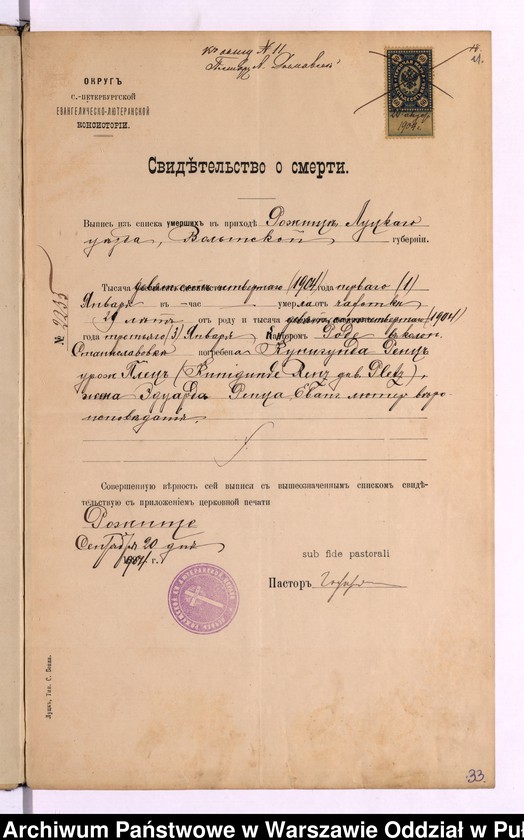 къ акту № 11
ОКРУГЪ
С.-ПЕТЕРБУРГСКОЙ
ЕВАНГЕЛИЧЕСКО-ЛЮТЕРАНСКОЙ
КОНСИСТОРІИ.
1904
Свидѣтельство о смерти.
Выпись изъ списка умершихъ въ приходѣ Рожище Луцкаго
уѣзда, Волынской губерніи.
Тысяча девятьсотъ четвертаго (1904) года перваго (1)
Января въ — час — умерла отъ чахотки
29 лѣтъ отъ роду и тысяча девятьсотъ четвертаго (1904)
года третьяго (3) Января Пасторомъ Роде въ колон.
Станиславовка погребена Кунигунда Ренцъ
урож. Плецъ (Kunigunde Renz geb. Pletz),
жена Эдуарда Ренца, Еванг. лютер. вѣро-
исповѣданія.
№ 2235
Совершенную вѣрность сей выписи съ вышеозначеннымъ спискомъ свидѣ-
тельствую съ приложеніемъ церковной печати
Рожище
Сентября 20 дня
1904 г.
sub fide pastorali
Пасторъ
Луцкъ, Тип. С.
33.
Archiwum Państwowe w Warszawie Oddział w Pu